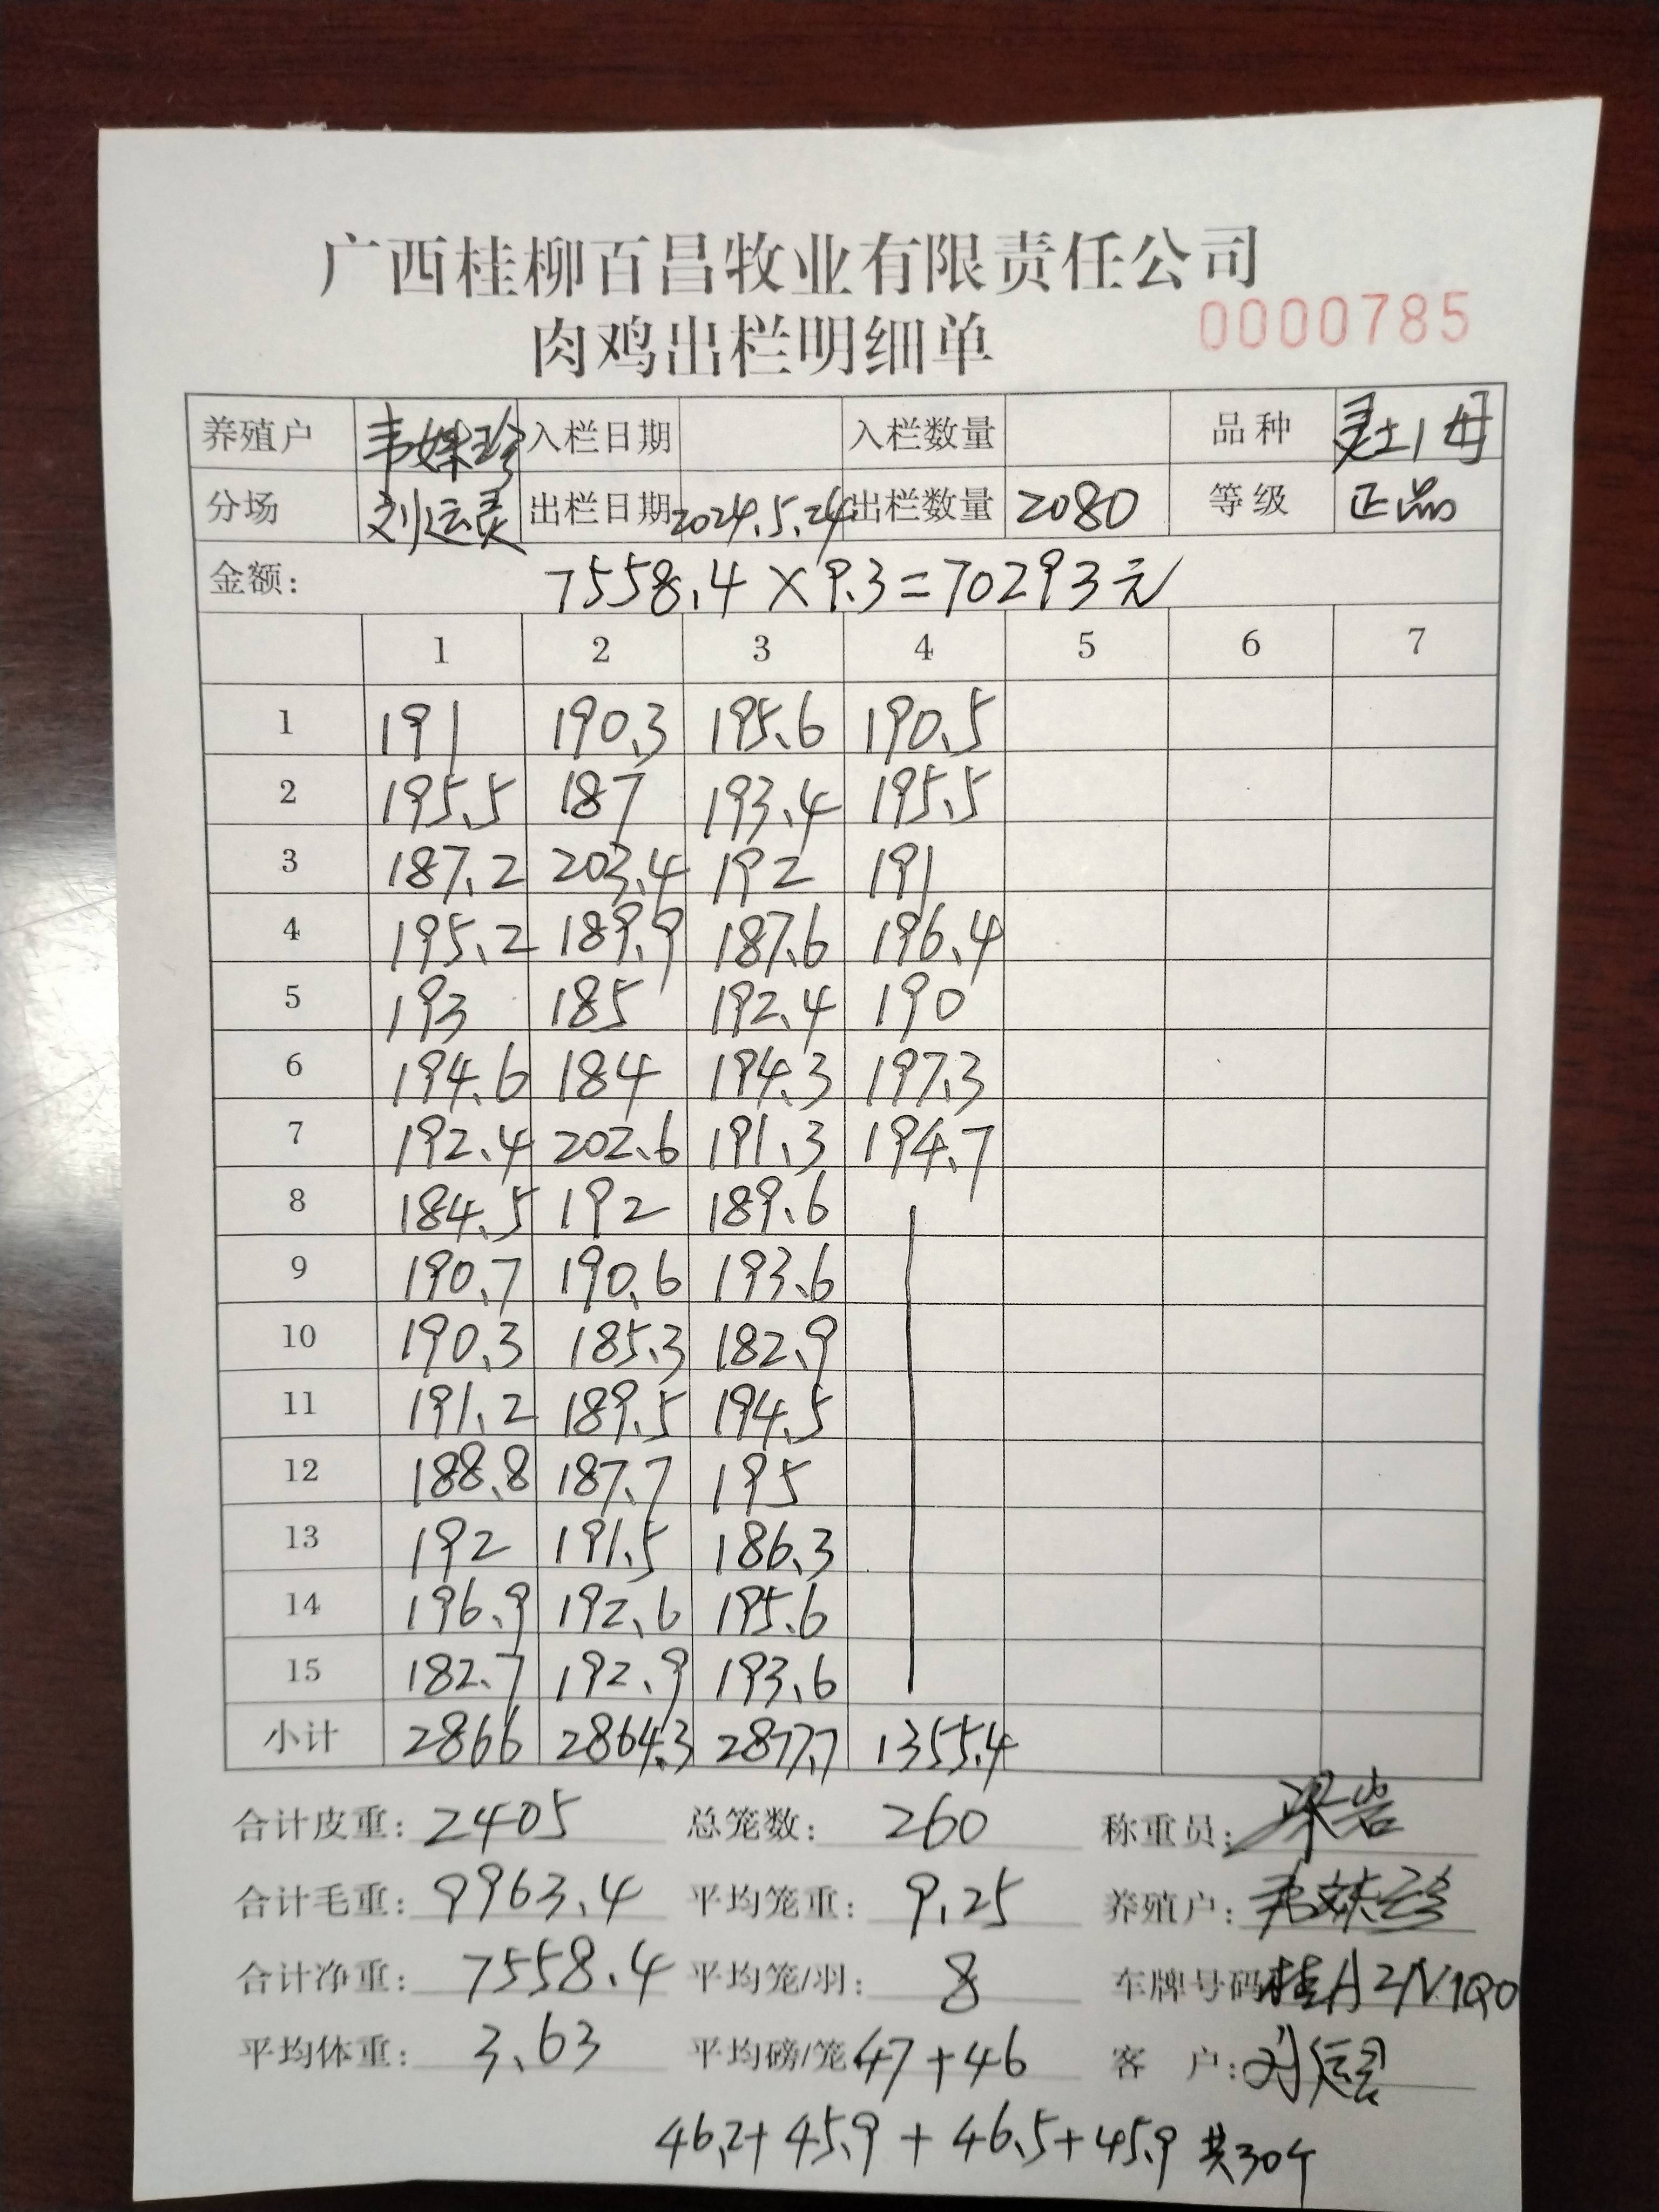 广西桂柳百昌牧业有限责任公司
肉鸡出栏明细单 0000785
养殖户 韦妹珍 入栏日期 入栏数量 品种 灵土1母
分场 刘运灵 出栏日期 2024.5.24 出栏数量 2080 等级 正品
金额: 7558.4×9.3=70293元
1 2 3 4 5 6 7
1 191 190.3 195.6 190.5
2 195.5 187 193.4 195.5
3 187.2 203.4 192 191
4 195.2 189.9 187.6 196.4
5 193 185 192.4 190
6 194.6 184 194.3 197.3
7 192.4 202.6 191.3 194.7
8 184.5 192 189.6
9 190.7 190.6 193.6
10 190.3 185.3 182.9
11 191.2 189.5 194.5
12 188.8 187.7 195
13 192 191.5 186.3
14 196.9 192.6 195.6
15 182.7 192.9 193.6
小计 2866 2864.3 2877.7 1355.4
合计皮重: 2405 总笼数: 260 称重员:
合计毛重: 9963.4 平均笼重: 9.25 养殖户: 韦妹珍
合计净重: 7558.4 平均笼/羽: 8 车牌号码 桂A2N1Q0
平均体重: 3.63 平均磅/笼 47+46 客 户: 刘运灵
46.2+45.9+46.5+45.9 共30个